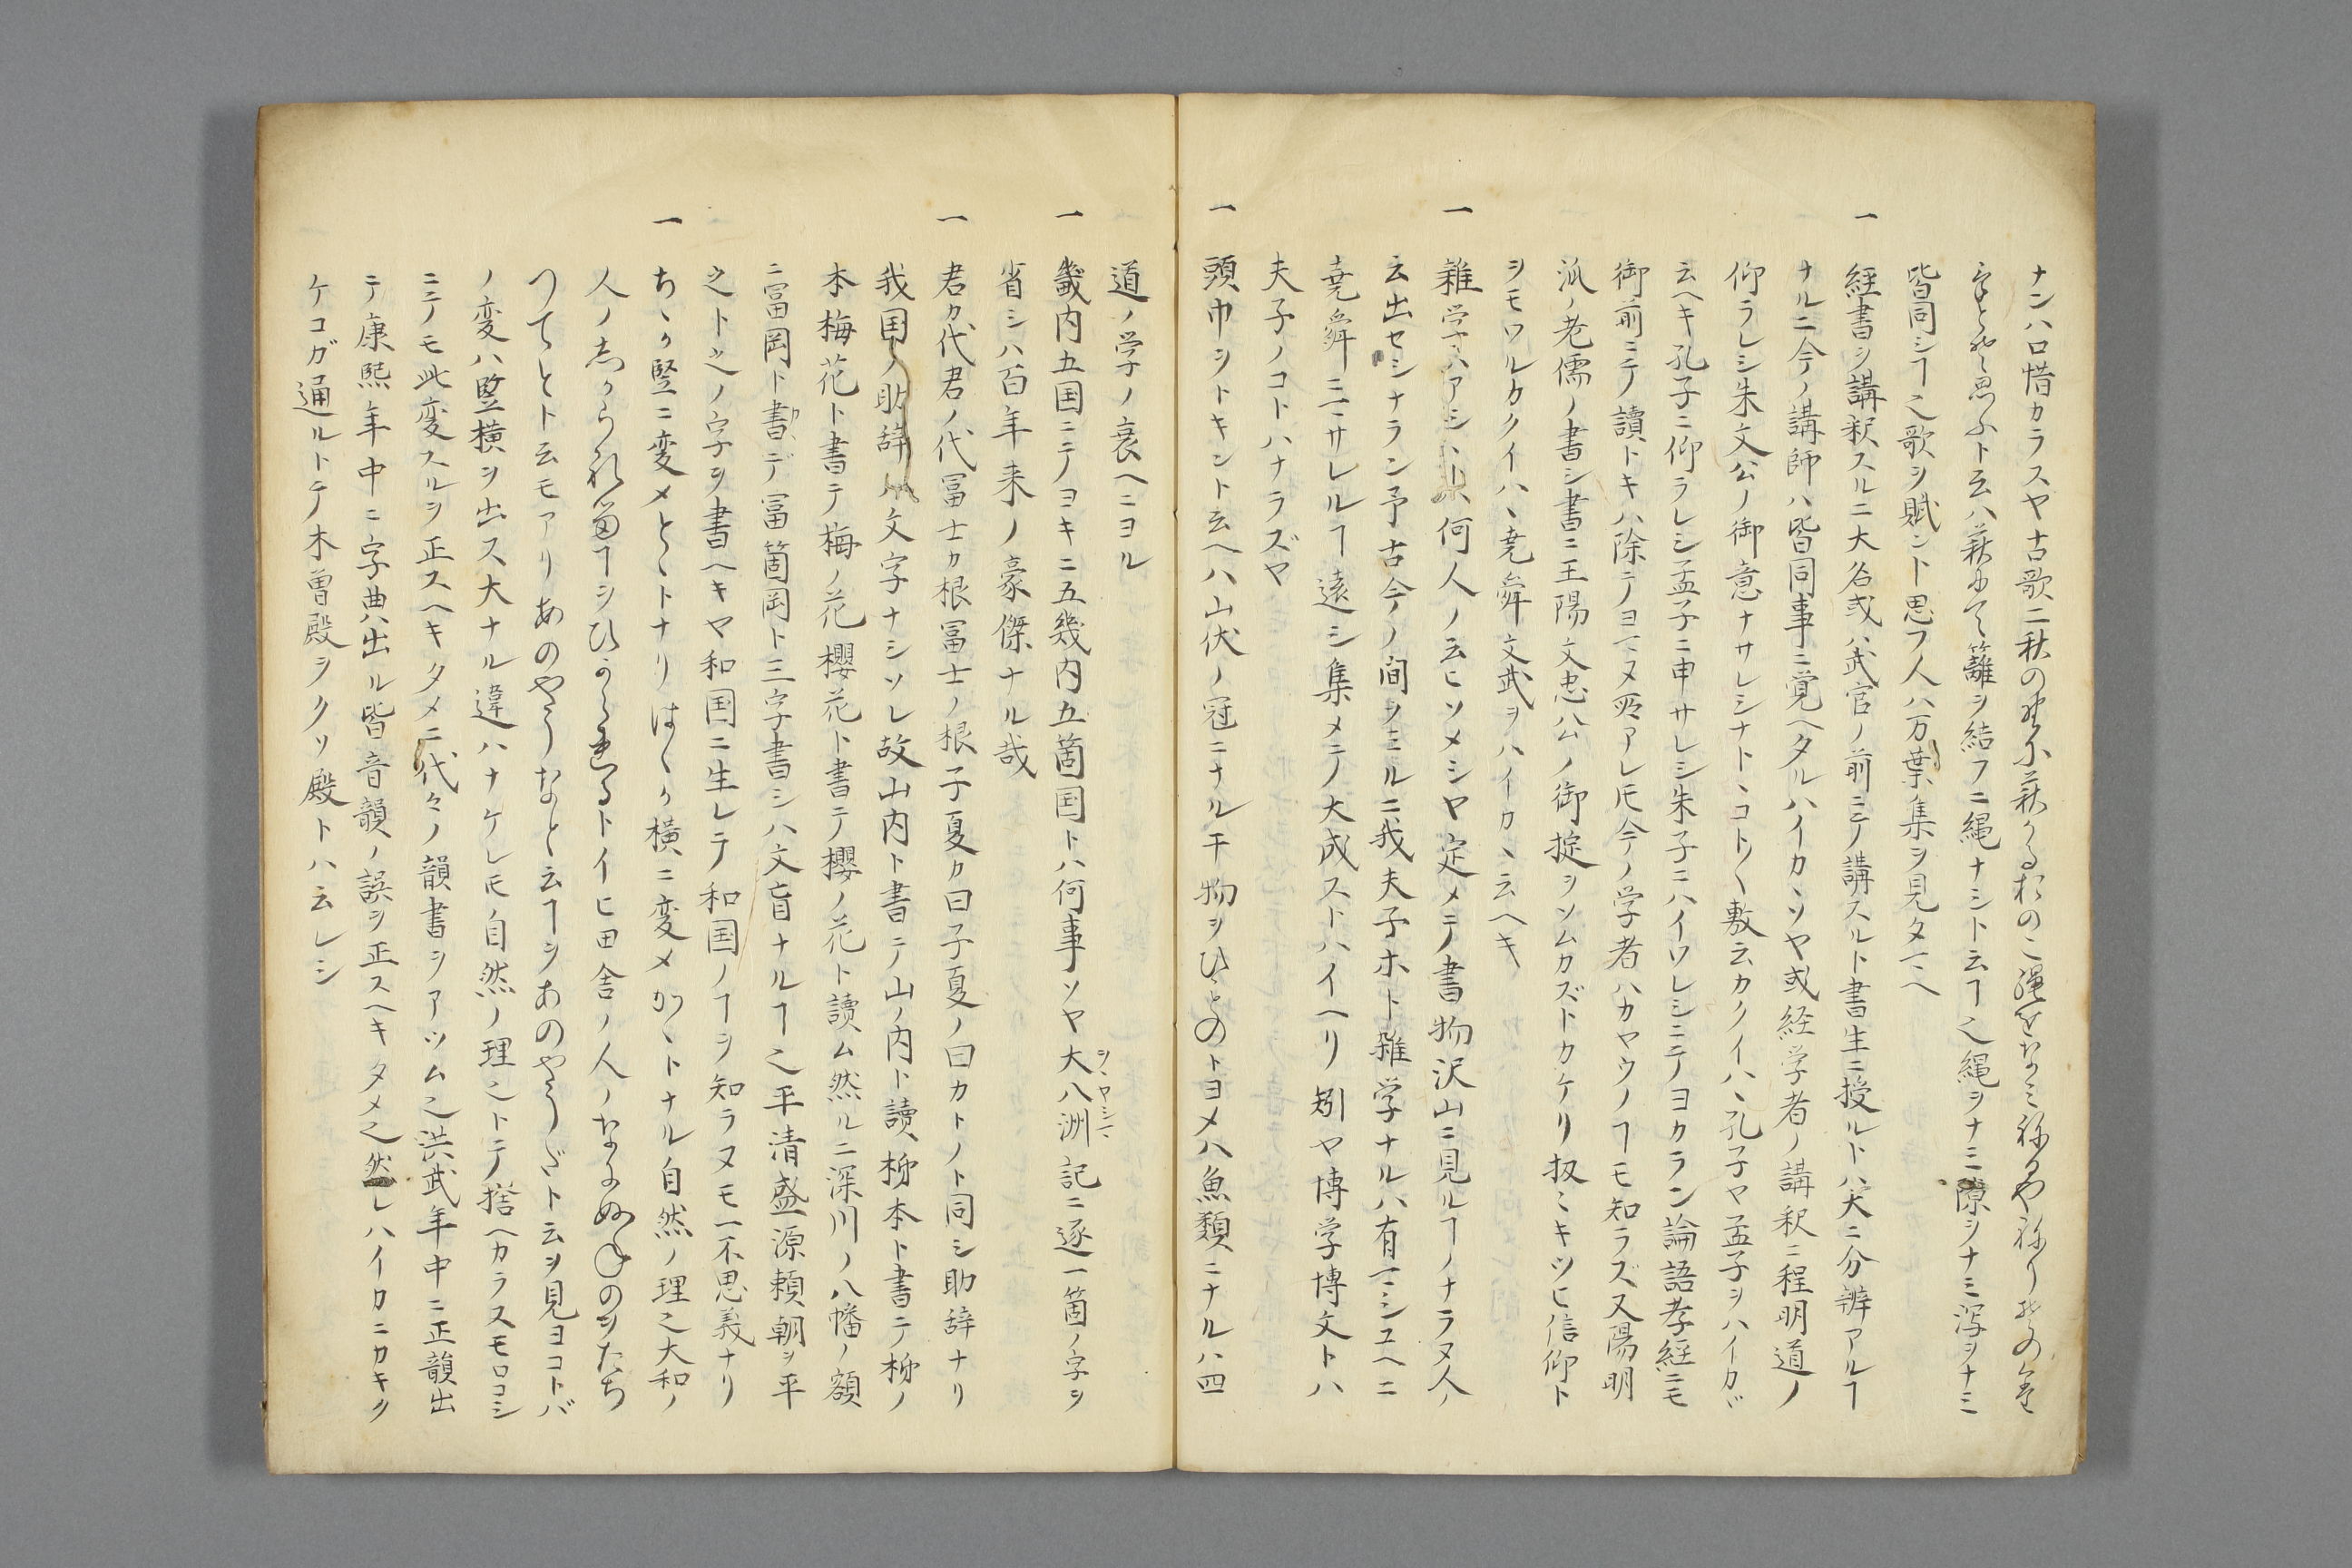 ナンハ口惜カラスヤ古歌ニ秋の野に萩かるおのこ縄をなみ
思ふト云ハ萩かりて籬ヲ結フニ縄ナシト云ヿ之縄ヲナミ隙ヲナミ瀉ヲナミ
皆同シヿ之歌ヲ賦ント思フ人ハ万葉集ヲ見タマヘ
一 経書ヲ講釈スルニ大名或ハ武官ノ前ニテ講スルト書生ニ授ルトハ実ニ分辨アルヿ
ナルニ今ノ講師ハ皆同事ニ覚ヘタルハイカヽソヤ或経学者ノ講釈ニ程明道ノ
仰ラレシ朱文公ノ御意ナサレシナトヽコト〱敷云カクイハヽ孔子ヤ孟子ヲハイカガ
云ヘキ孔子ニ仰ラレシ孟子ニ申サレシ朱子ニハイワレシニテヨカラン論語孝経ニモ
御前ニテノ讀トキハ除テヨマヌ所アレ𪜈今ノ学者ハカヤウノヿモ知ラズ又陽明
派ノ老儒ノ書シ書ニ王陽文忠公ノ御掟ヲソムカズトカケリ扨ミキツヒ信仰ト
ヲモワルカクイハヽ堯舜文武ヲハイカヽ云ヘキ
一 雑学ハアシヽトハ何人ノ云ヒソメシヤ定メテ書物沢山ニ見ルヿノナラヌ人ノ
云出セシナラン予古今ノ間ヲミルニ我夫子ホト雑学ナルハ有マシユヘニ
堯舜ニマサレルヿ遠シ集メテ大成ストハイヘリ矧ヤ博学博文トハ
夫子ノコトハナラズヤ
一 頭巾ヲトキント云ヘハ山伏ノ冠ニナル干物ヲひものトヨメハ魚類ニナルハ四
道ノ学ノ衰ヘニヨル
一 畿内五国ニテヨキニ五幾内五箇国トハ何事ソヤ大八洲記ニ逐一箇ノ字ヲ
ヲヽヤシマ
省シハ百年来ノ豪傑ナル哉
一 君カ代君ノ代冨士カ根冨士ノ根子夏カ曰子夏ノ曰カトノト同シ助辞ナリ
我国ノ助辞ハ文字ナシソレ故山内ト書テ山ノ内ト讀栁本ト書テ栁ノ
本梅花ト書テ梅ノ花櫻花ト書テ櫻ノ花ト讀ム然ルニ深川ノ八幡ノ額
ニ冨岡ト書デ冨箇岡ト三字書シハ文盲ナルヿ之平清盛源頼朝ヲ平
之ト之ノ字ヲ書ヘキヤ和国ニ生レテ和国ノヿヲ知ラヌモ一不思義ナリ
一 ちゝカ竪ニ変メとゝトナリはゝカ横ニ変メかゝトナル自然ノ理之大和ノ
人ノしからねヿヲひからトイヒ田舎ノ人ノ
つてとト云モアリあのやうなと云ヿヲあのやうだト云ヲ見ヨコトバ
ノ変ハ竪横ヲ出ス大ナル違ハナケレ𪜈自然ノ理之トテ捨ヘカラスモロコシ
ニテモ此変スルヲ正スヘキタメニ代々ノ韻書ヲアツム之洪武年中ニ正韻出
テ康熙年中ニ字典出ル皆音韻ノ誤ヲ正スヘキタメ之然レハイカニカキク
ケコガ通ルトテ木曽殿ヲクソ殿トハ云レシ